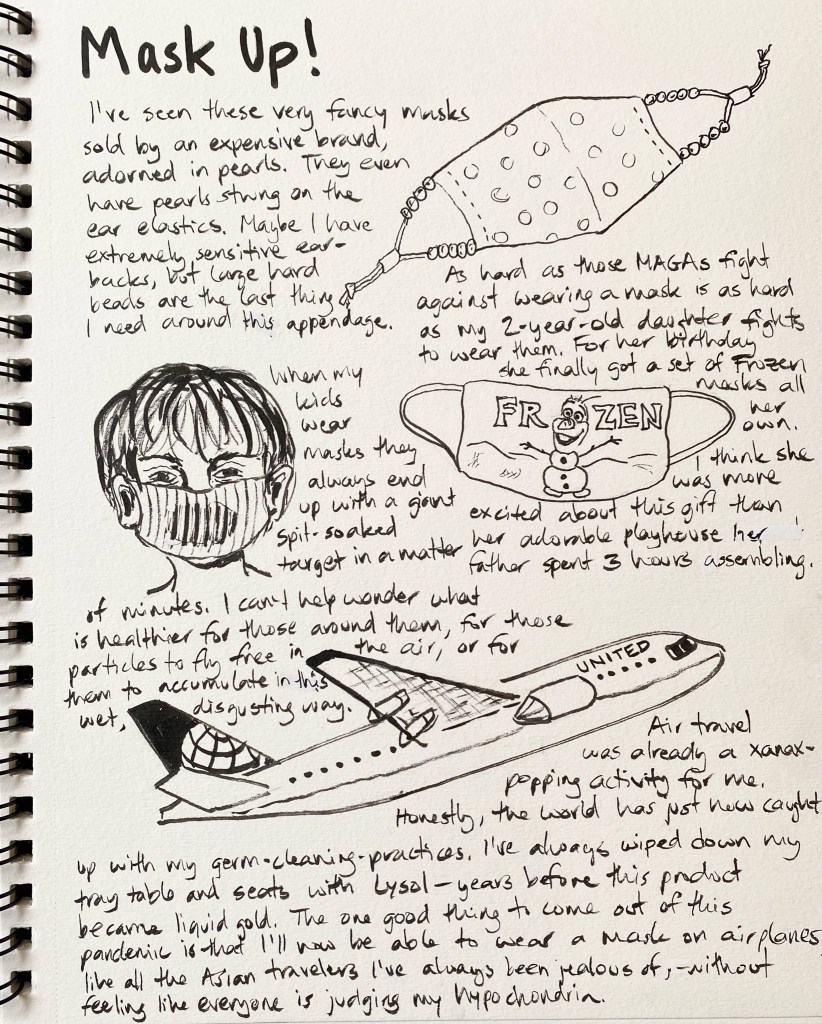 Mask Up!
I've seen these very fancy masks
sold by an expensive brand,
adorned in pearls. They even
have pearls strung on the
ear elastics. Maybe I have
extremely sensitive ear-
backs, but large hard
beads are the last thing
I need around this appendage.
As hard as those MAGAs fight
against wearing a mask is as hard
as my 2-year-old daughter fights
to wear them. For her birthday
she finally got a set of Frozen
masks all
her
own.
FROZEN
I think she
was more
excited about this gift than
her adorable playhouse her
father spent 3 hours assembling.
When my
kids
wear
masks they
always end
up with a giant
spit-soaked
target in a matter
of minutes. I can't help wonder what
is healthier for those around them, for those
particles to fly free in the air, or for
them to accumulate in this
wet, disgusting way.
UNITED
Air travel
was already a xanax-
popping activity for me.
Honestly, the world has just now caught
up with my germ-cleaning-practices. I've always wiped down my
tray table and seats with Lysol—years before this product
became liquid gold. The one good thing to come out of this
pandemic is that I'll now be able to wear a mask on airplanes
like all the Asian travelers I've always been jealous of,—without
feeling like everyone is judging my hypochondria.